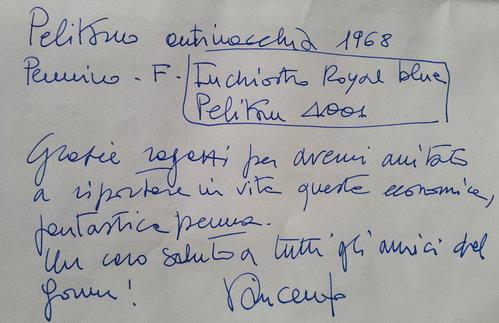 Pelikano antimacchia 1968
Pennino - F - Inchiostro Royal blue
Pelikan 4001
Grazie ragazzi per avermi aiutato
a riportare in vita questa economica,
fantastica penna.
Un caro saluto a tutti gli amici del
forum! Vincenzo